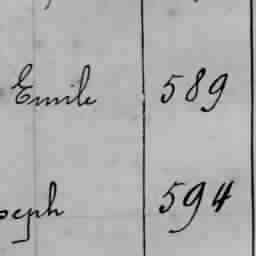 Emile 589
oseph 594